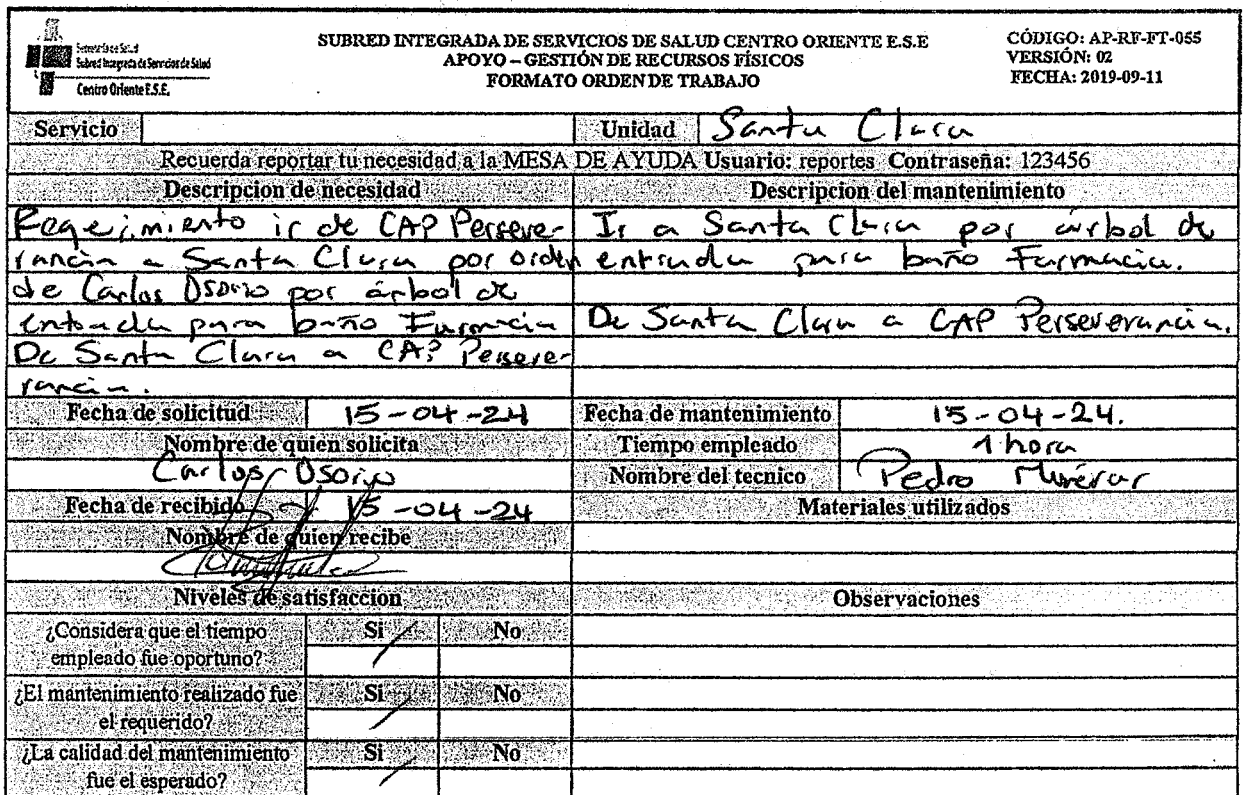 Secretaría de Salud
Subred Integrada de Servicios de Salud
Centro Oriente E.S.E.
SUBRED INTEGRADA DE SERVICIOS DE SALUD CENTRO ORIENTE E.S.E
APOYO – GESTIÓN DE RECURSOS FÍSICOS
FORMATO ORDEN DE TRABAJO
CÓDIGO: AP-RF-FT-055
VERSIÓN: 02
FECHA: 2019-09-11
Servicio
Unidad Santa Clara
Recuerda reportar tu necesidad a la MESA DE AYUDA Usuario: reportes Contraseña: 123456
Descripcion de necesidad
Requeimiento ir de CAP Perseve-
rancia a Santa Clara por orden
de Carlos Osorio por árbol de
entrada para baño Farmacia
De Santa Clara a CAP Perseve-
rancia.
Descripcion del mantenimiento
Ir a Santa Clara por árbol de
entrada para baño Farmacia.
De Santa Clara a CAP Perseverancia.
Fecha de solicitud 15-04-24
Fecha de mantenimiento 15-04-24.
Nombre de quien solicita
Carlos Osorio
Tiempo empleado 1 hora
Nombre del tecnico Pedro
Fecha de recibido 15-04-24
Materiales utilizados
Nombre de quien recibe
Niveles de satisfaccion
Observaciones
¿Considera que el tiempo
empleado fue oportuno?
Si No
¿El mantenimiento realizado fue
el requerido?
Si No
¿La calidad del mantenimiento
fue el esperado?
Si No